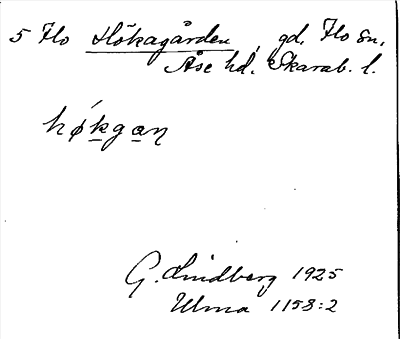 5 Flo Hökagården, gd. Flo sn,
Åse hd. Skarab. l.
hǿkgan
G. Lindberg 1925
Ulma 1158:2